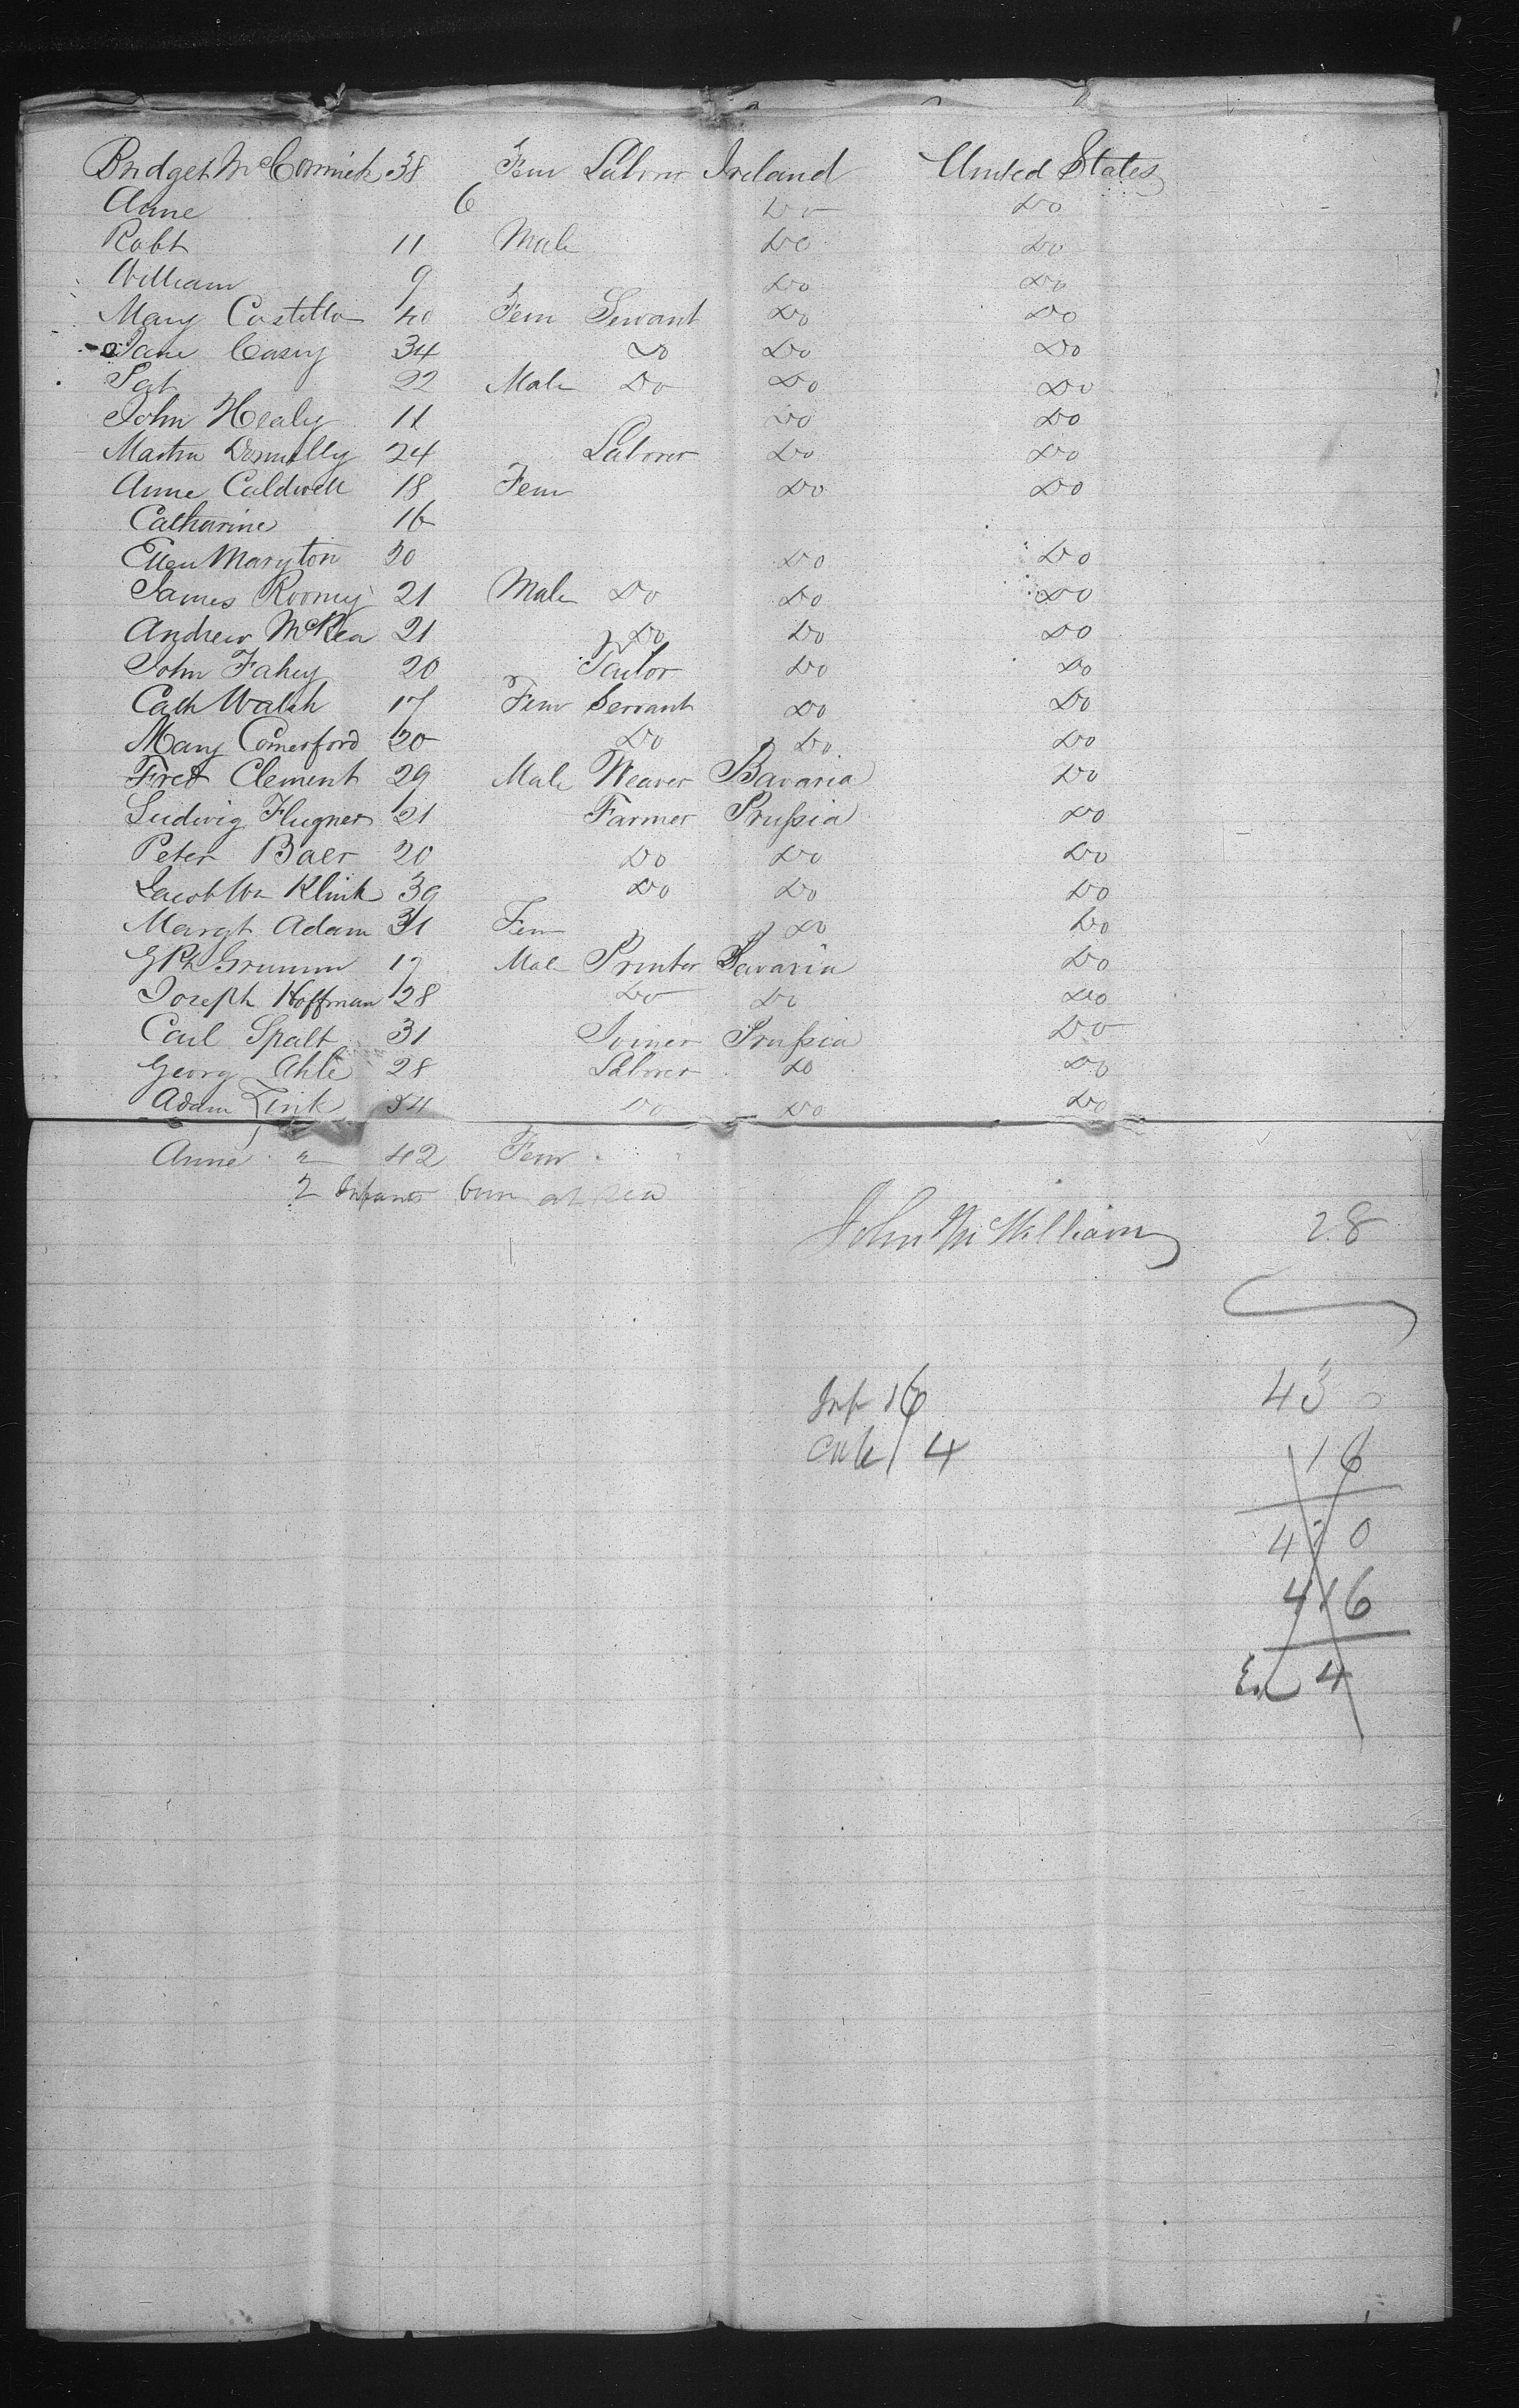 Bridget McCormick 38 Fem Laborer Ireland United States
Anne 6 Do Do
Robt 11 Male Do Do
William 9 Do Do
Mary Costello 40 Fem Servant Do Do
Jane Casey 34 Do Do Do
Pat 22 Male Do Do Do
John Healy 11 Do Do
Martin Donnelly 24 Laborer Do Do
Anne Caldwell 18 Fem Do Do
Catharine 16
Ellen Maryton 20 Do Do
James Rooney 21 Male Do Do Do
Andrew McKea 21 Do Do Do
John Fahey 20 Tailor Do Do
Cath Walsh 17 Fem Servant Do Do
Mary Comerford 20 Do Do Do
Fred Clement 29 Male Weaver Bavaria Do
Ludwig Flugner 21 Farmer Prussia Do
Peter Baer 20 Do Do Do
Jacob Wm Klink 39 Do Do Do
Margt Adam 31 Fem Do Do
G Ph Grumm 17 Male Printer Bavaria Do
Joseph Hoffman 28 Do Do Do
Carl Spalt 31 Joiner Prussia Do
Georg Ahle 28 Laborer Do Do
Adam Zink 34 Do Do Do
Anne " 42 Fem
2 Infants born at sea
John McWilliam 28
Inf 16 43
4 16
4 0
416
4